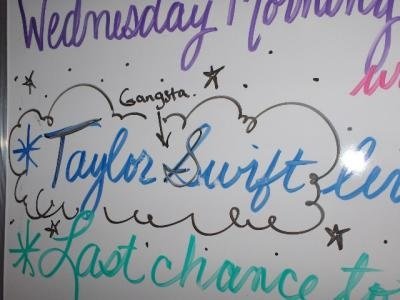 Wednesday Morning
Gangsta
* Taylor Swift
* Last chance to